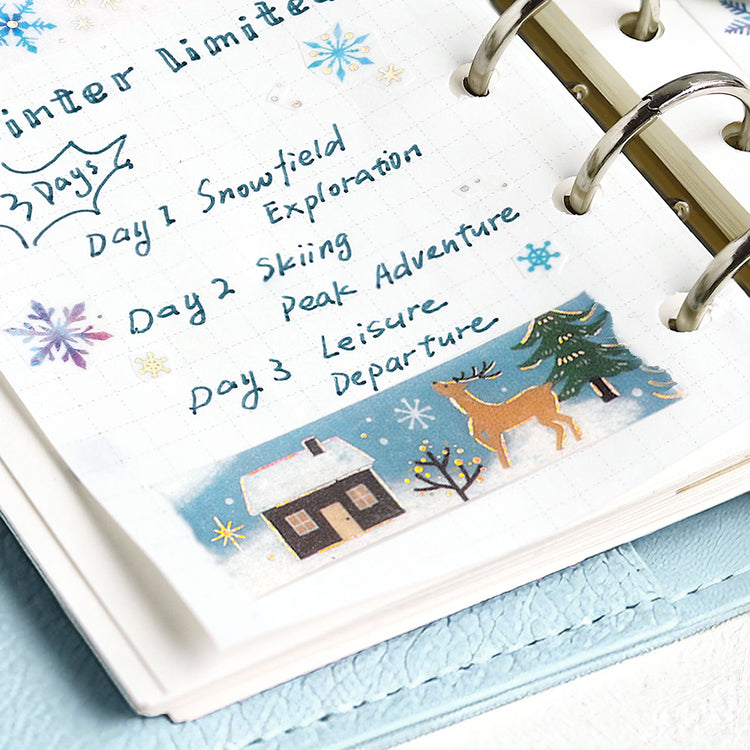 inter limited
3 Days
Day 1 Snowfield
Exploration
Day 2 Skiing
Peak Adventure
Day 3 Leisure
Departure